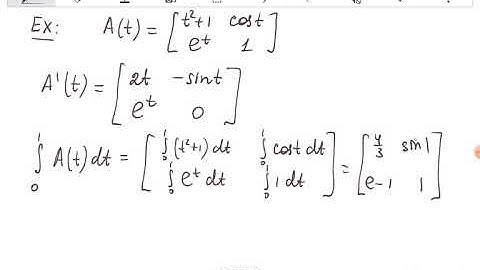 Ex: A(t) = [t²+1 cost
eᵗ 1]
A'(t) = [2t -sint
eᵗ 0]
∫₀¹ A(t) dt = [∫₀¹ (t²+1) dt ∫₀¹ cost dt
∫₀¹ eᵗ dt ∫₀¹ 1 dt] = [4/3 sin1
e-1 1]